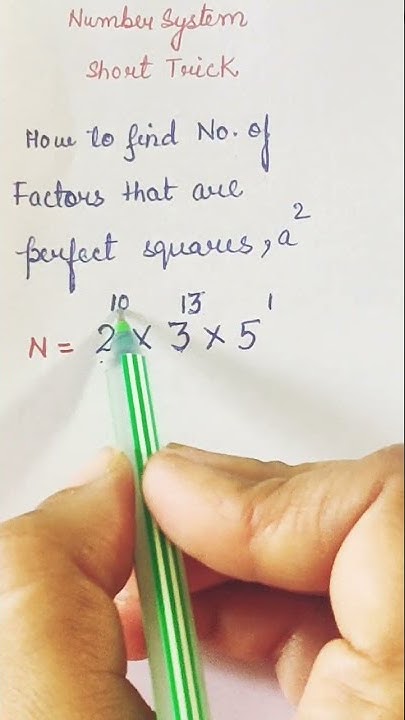 Number System
Short Trick
How to find No. of
Factors that are
perfect squares, a²
N = 2¹⁰ × 3¹³ × 5¹